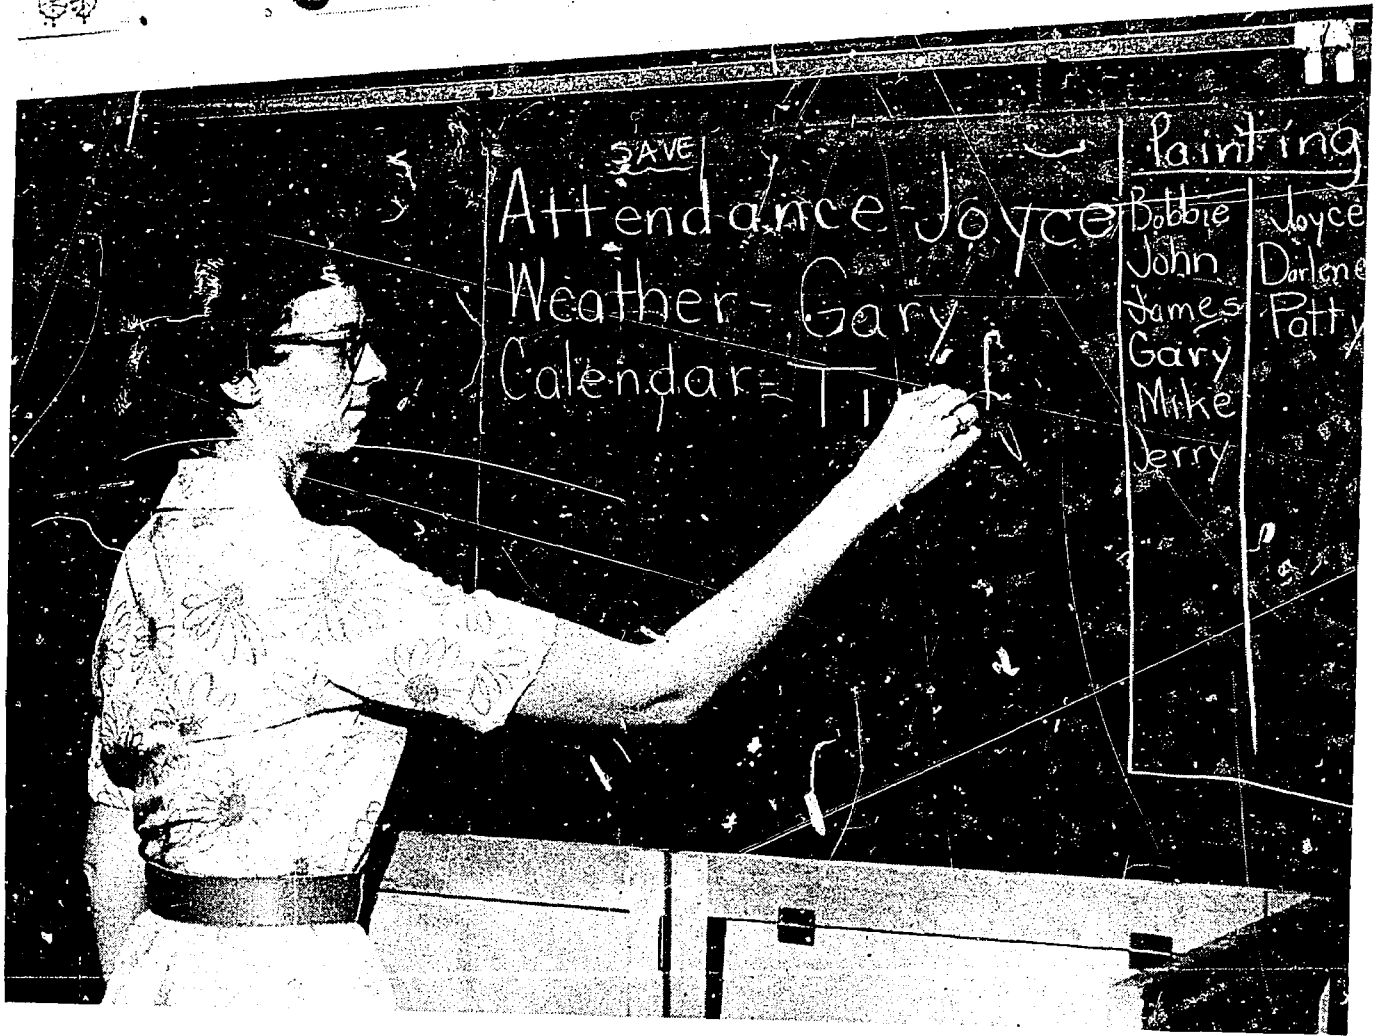 SAVE
Attendance - Joyce
Weather - Gary
Calendar = Ti
Painting
Bobbie
John
James
Gary
Mike
Jerry
Joyce
Darlene
Patty